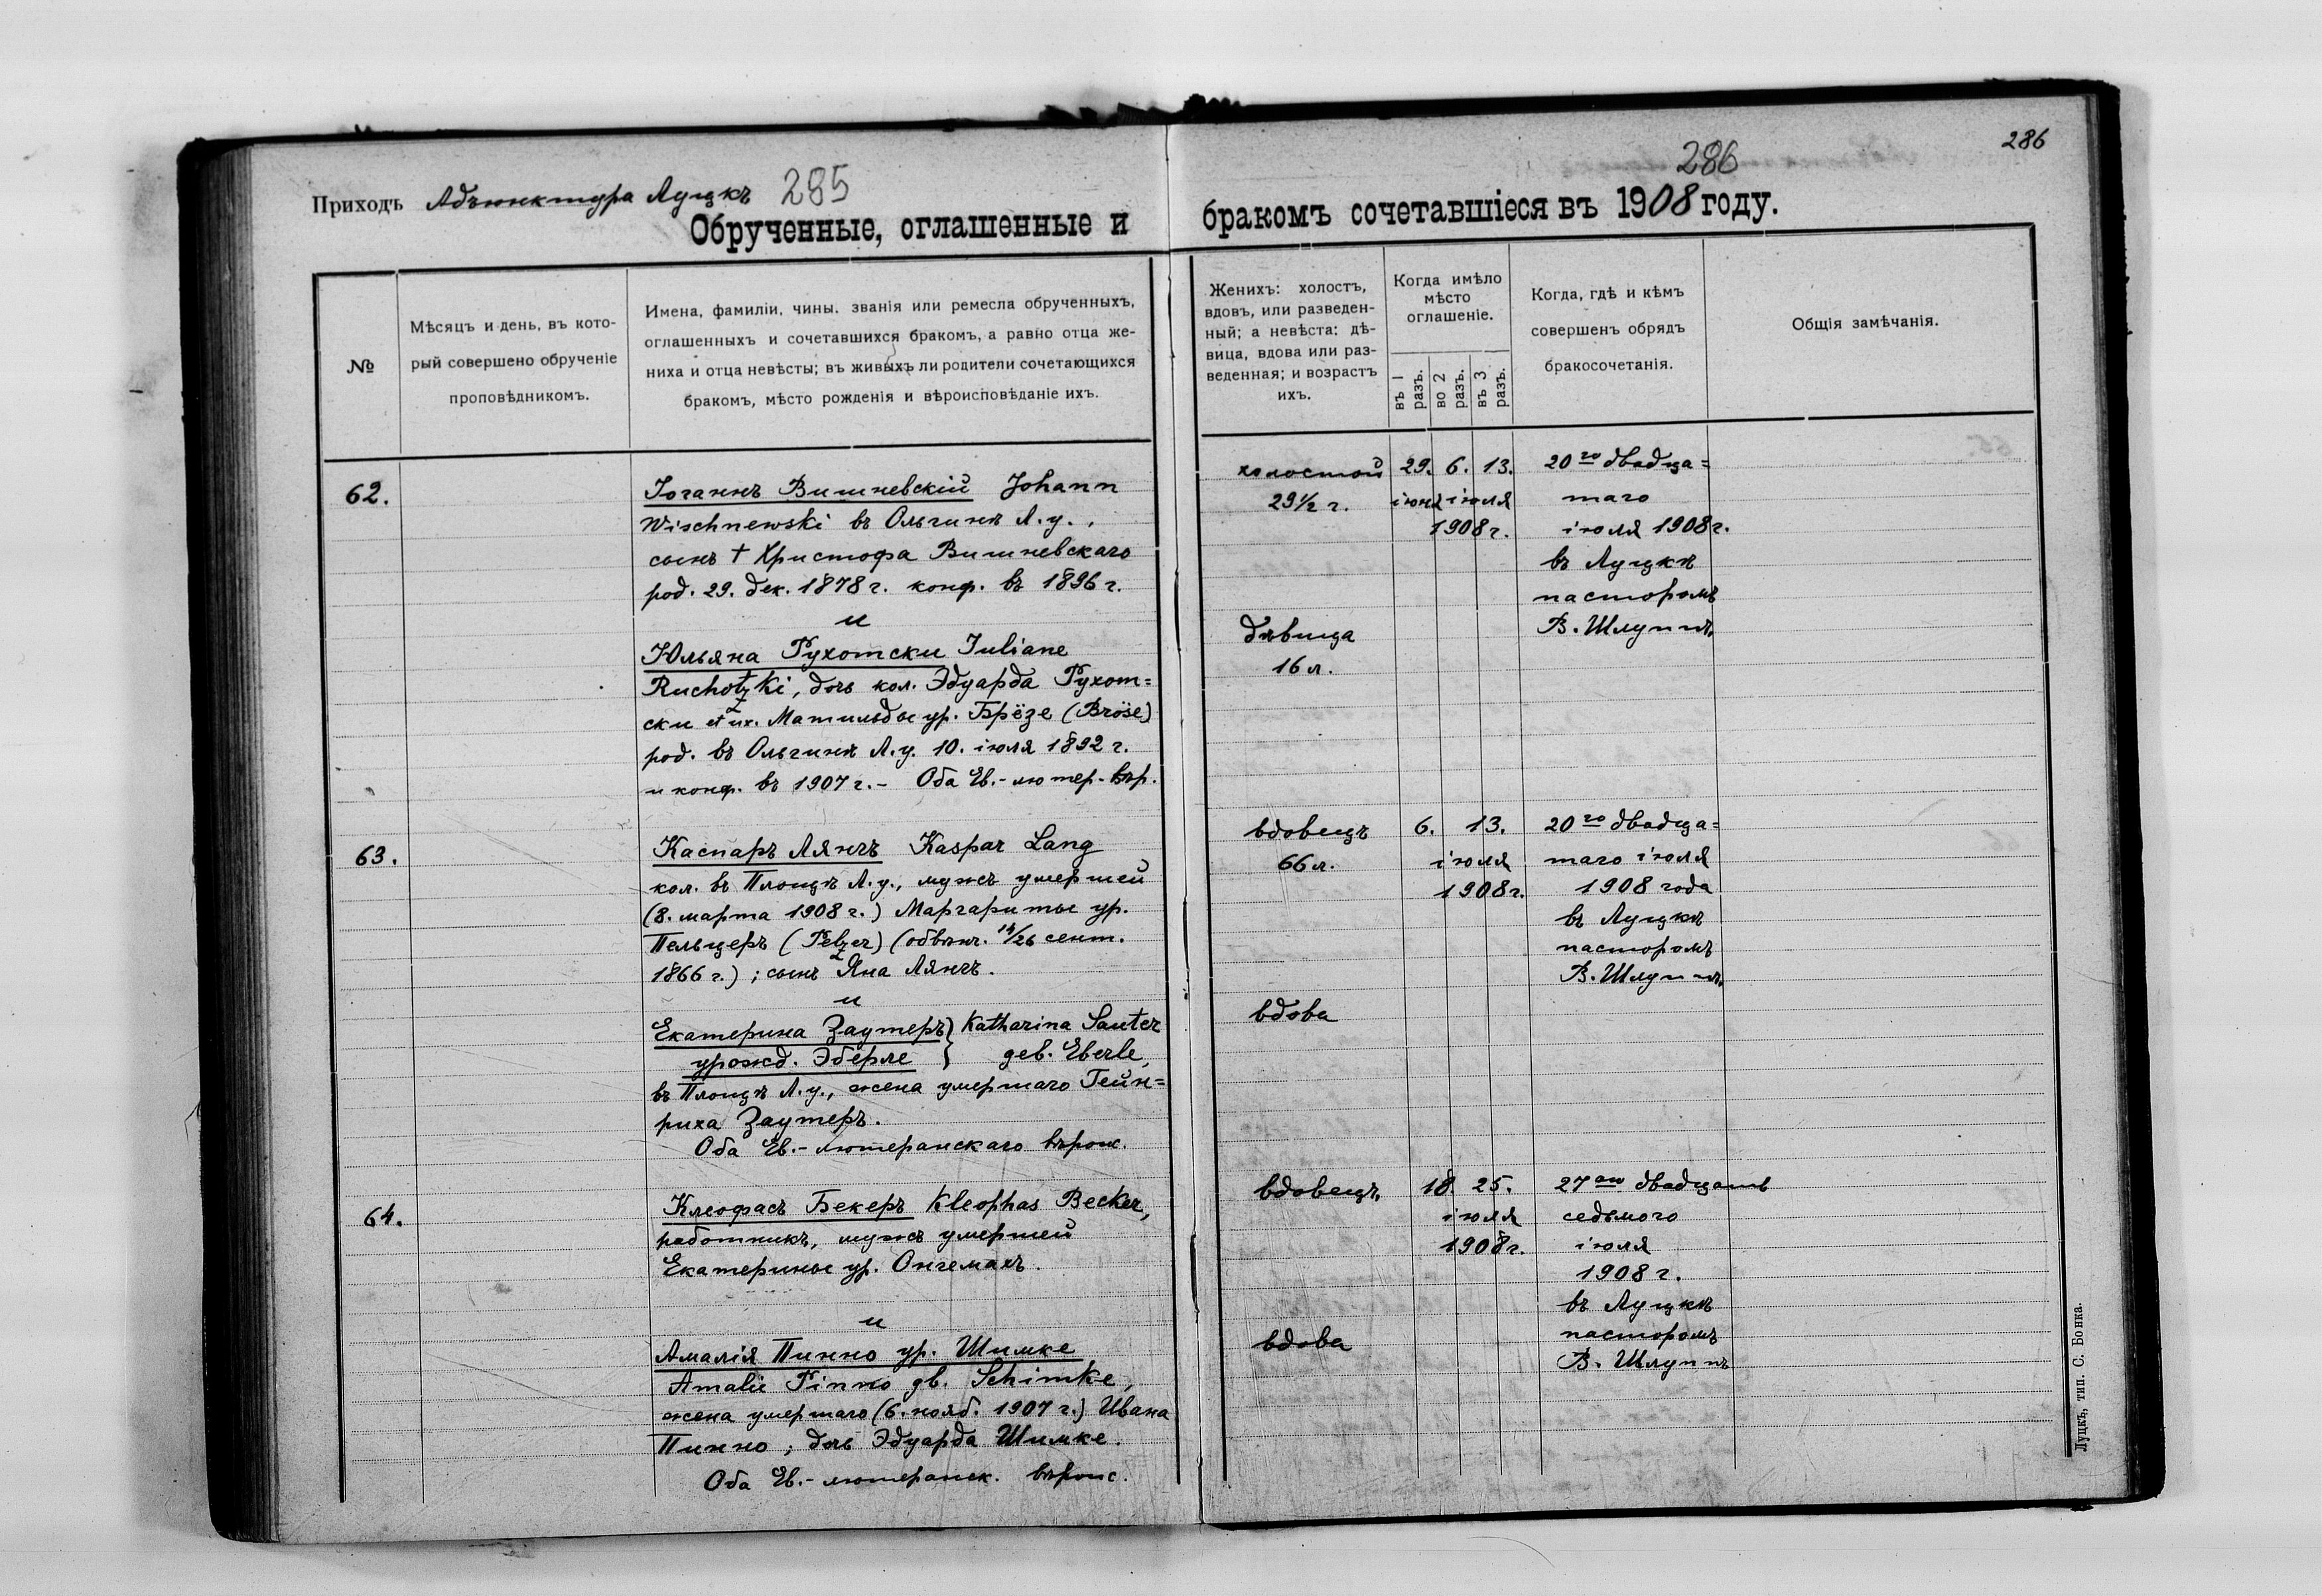 286
286
Приходъ Адъюнктура Луцкъ 285
Обрученные, оглашенные и бракомъ сочетавшіеся въ 1908 году.
№
Мѣсяцъ и день, въ кото-
рый совершено обрученіе
проповѣдникомъ.
Имена, фамиліи, чины. званія или ремесла обрученныхъ,
оглашенныхъ и сочетавшихся бракомъ, а равно отца же-
ниха и отца невѣсты; въ живыхъ ли родители сочетающихся
бракомъ, мѣсто рожденія и вѣроисповѣданіе ихъ.
Женихъ: холостъ,
вдовъ, или разведен-
ный; а невѣста: дѣ-
вица, вдова или раз-
веденная; и возрастъ
ихъ.
Когда имѣло
мѣсто
оглашеніе.
въ 1 разъ.
во 2 разъ.
въ 3 разъ.
Когда, гдѣ и кѣмъ
совершенъ обрядъ
бракосочетанія.
Общія замѣчанія.
62.
Іоганнъ Вишневскій Johann
Wischnewski въ Ольгинѣ Л.у.,
сынъ † Христофа Вишневскаго
род. 29. дек. 1878 г. конф. въ 1896 г.
и
Юльяна Рухотски Juliane
Ruchotzki, дочь кол. Эдуарда Рухот=
ски et ux. Матильды ур. Брёзе (Bröse)
род. въ Ольгинѣ Л.у. 10. іюля 1892 г.
и конф. въ 1907 г. - Оба Ев.-лютер. вѣр.
холостой
29½ г.
дѣвица
16 л.
29. 6. 13.
іюня іюля
1908 г.
20го двадца=
таго
іюля 1908 г.
въ Луцкѣ
пасторомъ
В. Шлуппъ.
63.
Каспаръ Лянгъ Kaspar Lang
кол. въ Площѣ Л.у., мужъ умершей
(8. марта 1908 г.) Маргариты ур.
Пельцеръ (Pelzer) (обвѣнч. 14/26 сент.
1866 г.); сынъ Яна Лянгъ.
и
Екатерина Заутеръ } Katharina Sauter
урожд. Эберле } geb. Eberle,
въ Площѣ Л.у., жена умершаго Гейн=
риха Заутеръ.
Оба Ев.-лютеранскаго вѣроис.
вдовецъ
66 л.
вдова
6. 13.
іюля
1908 г.
20го двадца=
таго іюля
1908 года
въ Луцкѣ
пасторомъ
В. Шлуппъ.
64.
Клеофасъ Бекеръ Kleophas Becker,
работникъ, мужъ умершей
Екатерины ур. Онгемахъ.
и
Амалія Пинно ур. Шимке
Amalie Pinno gb. Schimke,
жена умершаго (6. нояб. 1907 г.) Ивана
Пинно; дочь Эдуарда Шимке.
Оба Ев.-лютеранск. вѣроис.
вдовецъ
вдова
18. 25.
іюля
1908 г.
27го двадцать
седьмого
іюля
1908 г.
въ Луцкѣ
пасторомъ
В. Шлуппъ
Луцкъ, тип. С. Бонка.